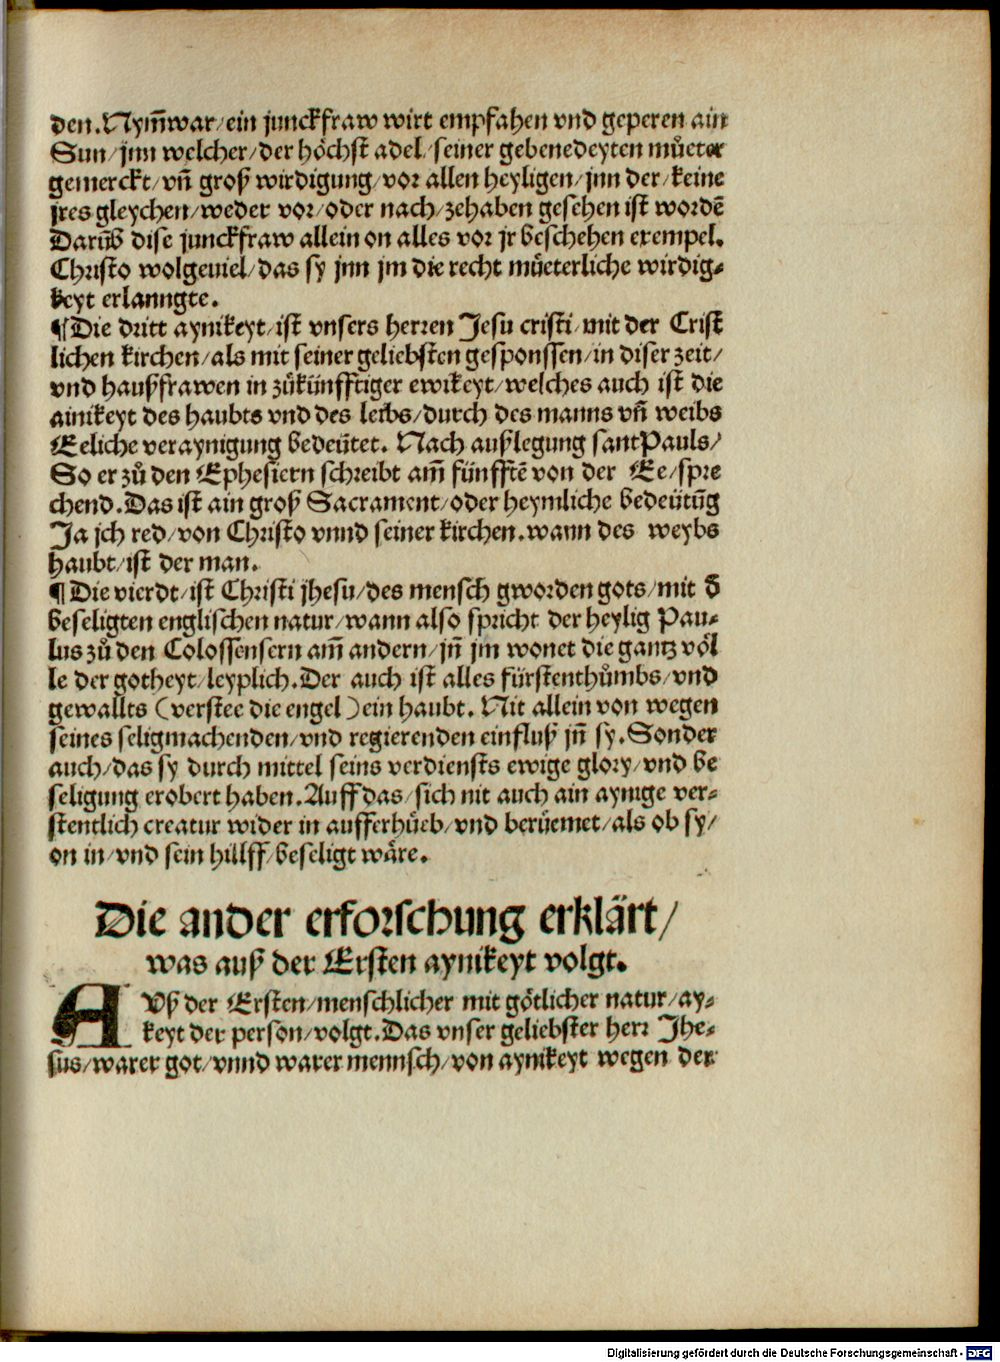 den. Nym̃war/ein junckfraw wirt empfahen vnd geperen ain
Sun/jnn welcher/der höchst adel/seiner gebenedeyten můeter
gemerckt/vñ groß wirdigung/vor allen heyligen/jnn der/keine
jres gleychen/weder vor/oder nach/zehaben gesehen ist wordē
Darūb dise junckfraw allein on alles vor jr beschehen exempel.
Christo wolgeuiel/das sy jnn jm die recht müeterliche wirdig⸗
keyt erlanngte.
¶Die dritt aynikeyt/ist vnsers herren Jesu cristi/mit der Crist
lichen kirchen/als mit seiner geliebsten gesponssen/in diser zeit/
vnd haußfrawen in zůkünfftiger ewikeyt/welches auch ist die
ainikeyt des haubts vnd des leibs/durch des manns vñ weibs
Eeliche veraynigung bedeütet. Nach außlegung sant Pauls/
So er zů den Ephesiern schreibt am̃ fünfftē von der Ee/spre
chend. Das ist ain groß Sacrament/oder heymliche bedeütūg
Ja jch red/von Christo vnnd seiner kirchen. wann des weybs
haubt/ist der man.
¶Die vierdt/ist Christi jhesu/des mensch gworden gots/mit d̄
beseligten englischen natur/wann also spricht der heylig Pau⸗
lus zů den Colossensern am̃ andern/jñ jm wonet die gantz völ
le der gotheyt/leyplich. Der auch ist alles fürstenthůmbs/vnd
gewallts (verstee die engel) ein haubt. Nit allein von wegen
seines seligmachenden/vnd regierenden einfluß jñ sy. Sonder
auch/das sy durch mittel seins verdiensts ewige glory/vnd be
seligung erobert haben. Auff das/sich nit auch ain aynige ver⸗
stentlich creatur wider in aufferhüeb/vnd berüemet/als ob sy/
on in/vnd sein hillff/beseligt wäre.
Die ander erforschung erklärt/
was auß der Ersten aynikeyt volgt.
AVß der Ersten/menschlicher mit götlicher natur/ay⸗
keyt der person/volgt. Das vnser geliebster herr Jhe⸗
sus/warer got/vnnd warer mennsch/von aynikeyt wegen der
Digitalisierung gefördert durch die Deutsche Forschungsgemeinschaft - DFG